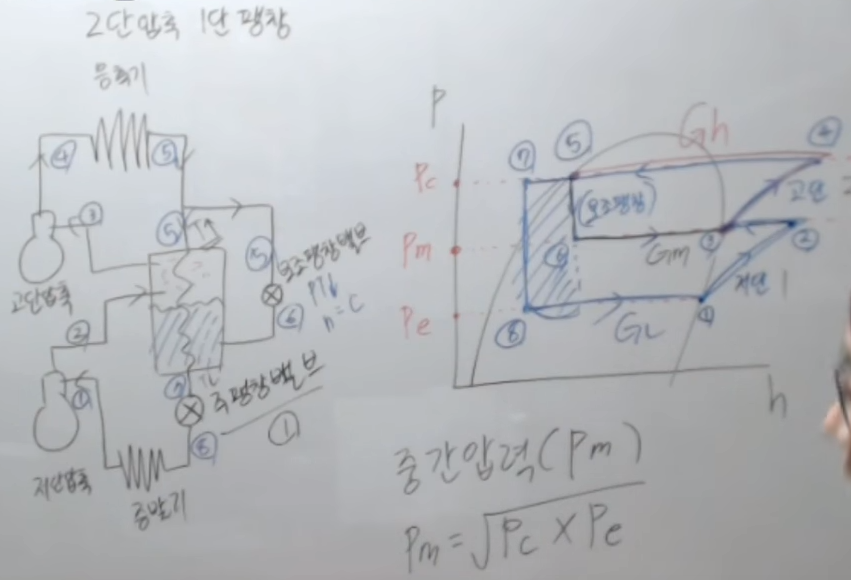 2단압축 1단팽창
응축기
④
⑤
③
⑤
T↑
⑤
보조팽창밸브
PT↓
h=c
⑥
고단압축
②
①
⑦
TL
주팽창밸브
⑧
①
저단압축
증발기
P
Gh
⑦
⑤
④
Pc
(보조팽창)
고단
Pm
⑥
Gm
③
②
저단
Pe
⑧
GL
①
h
중간압력(Pm)
Pm=√Pc×Pe